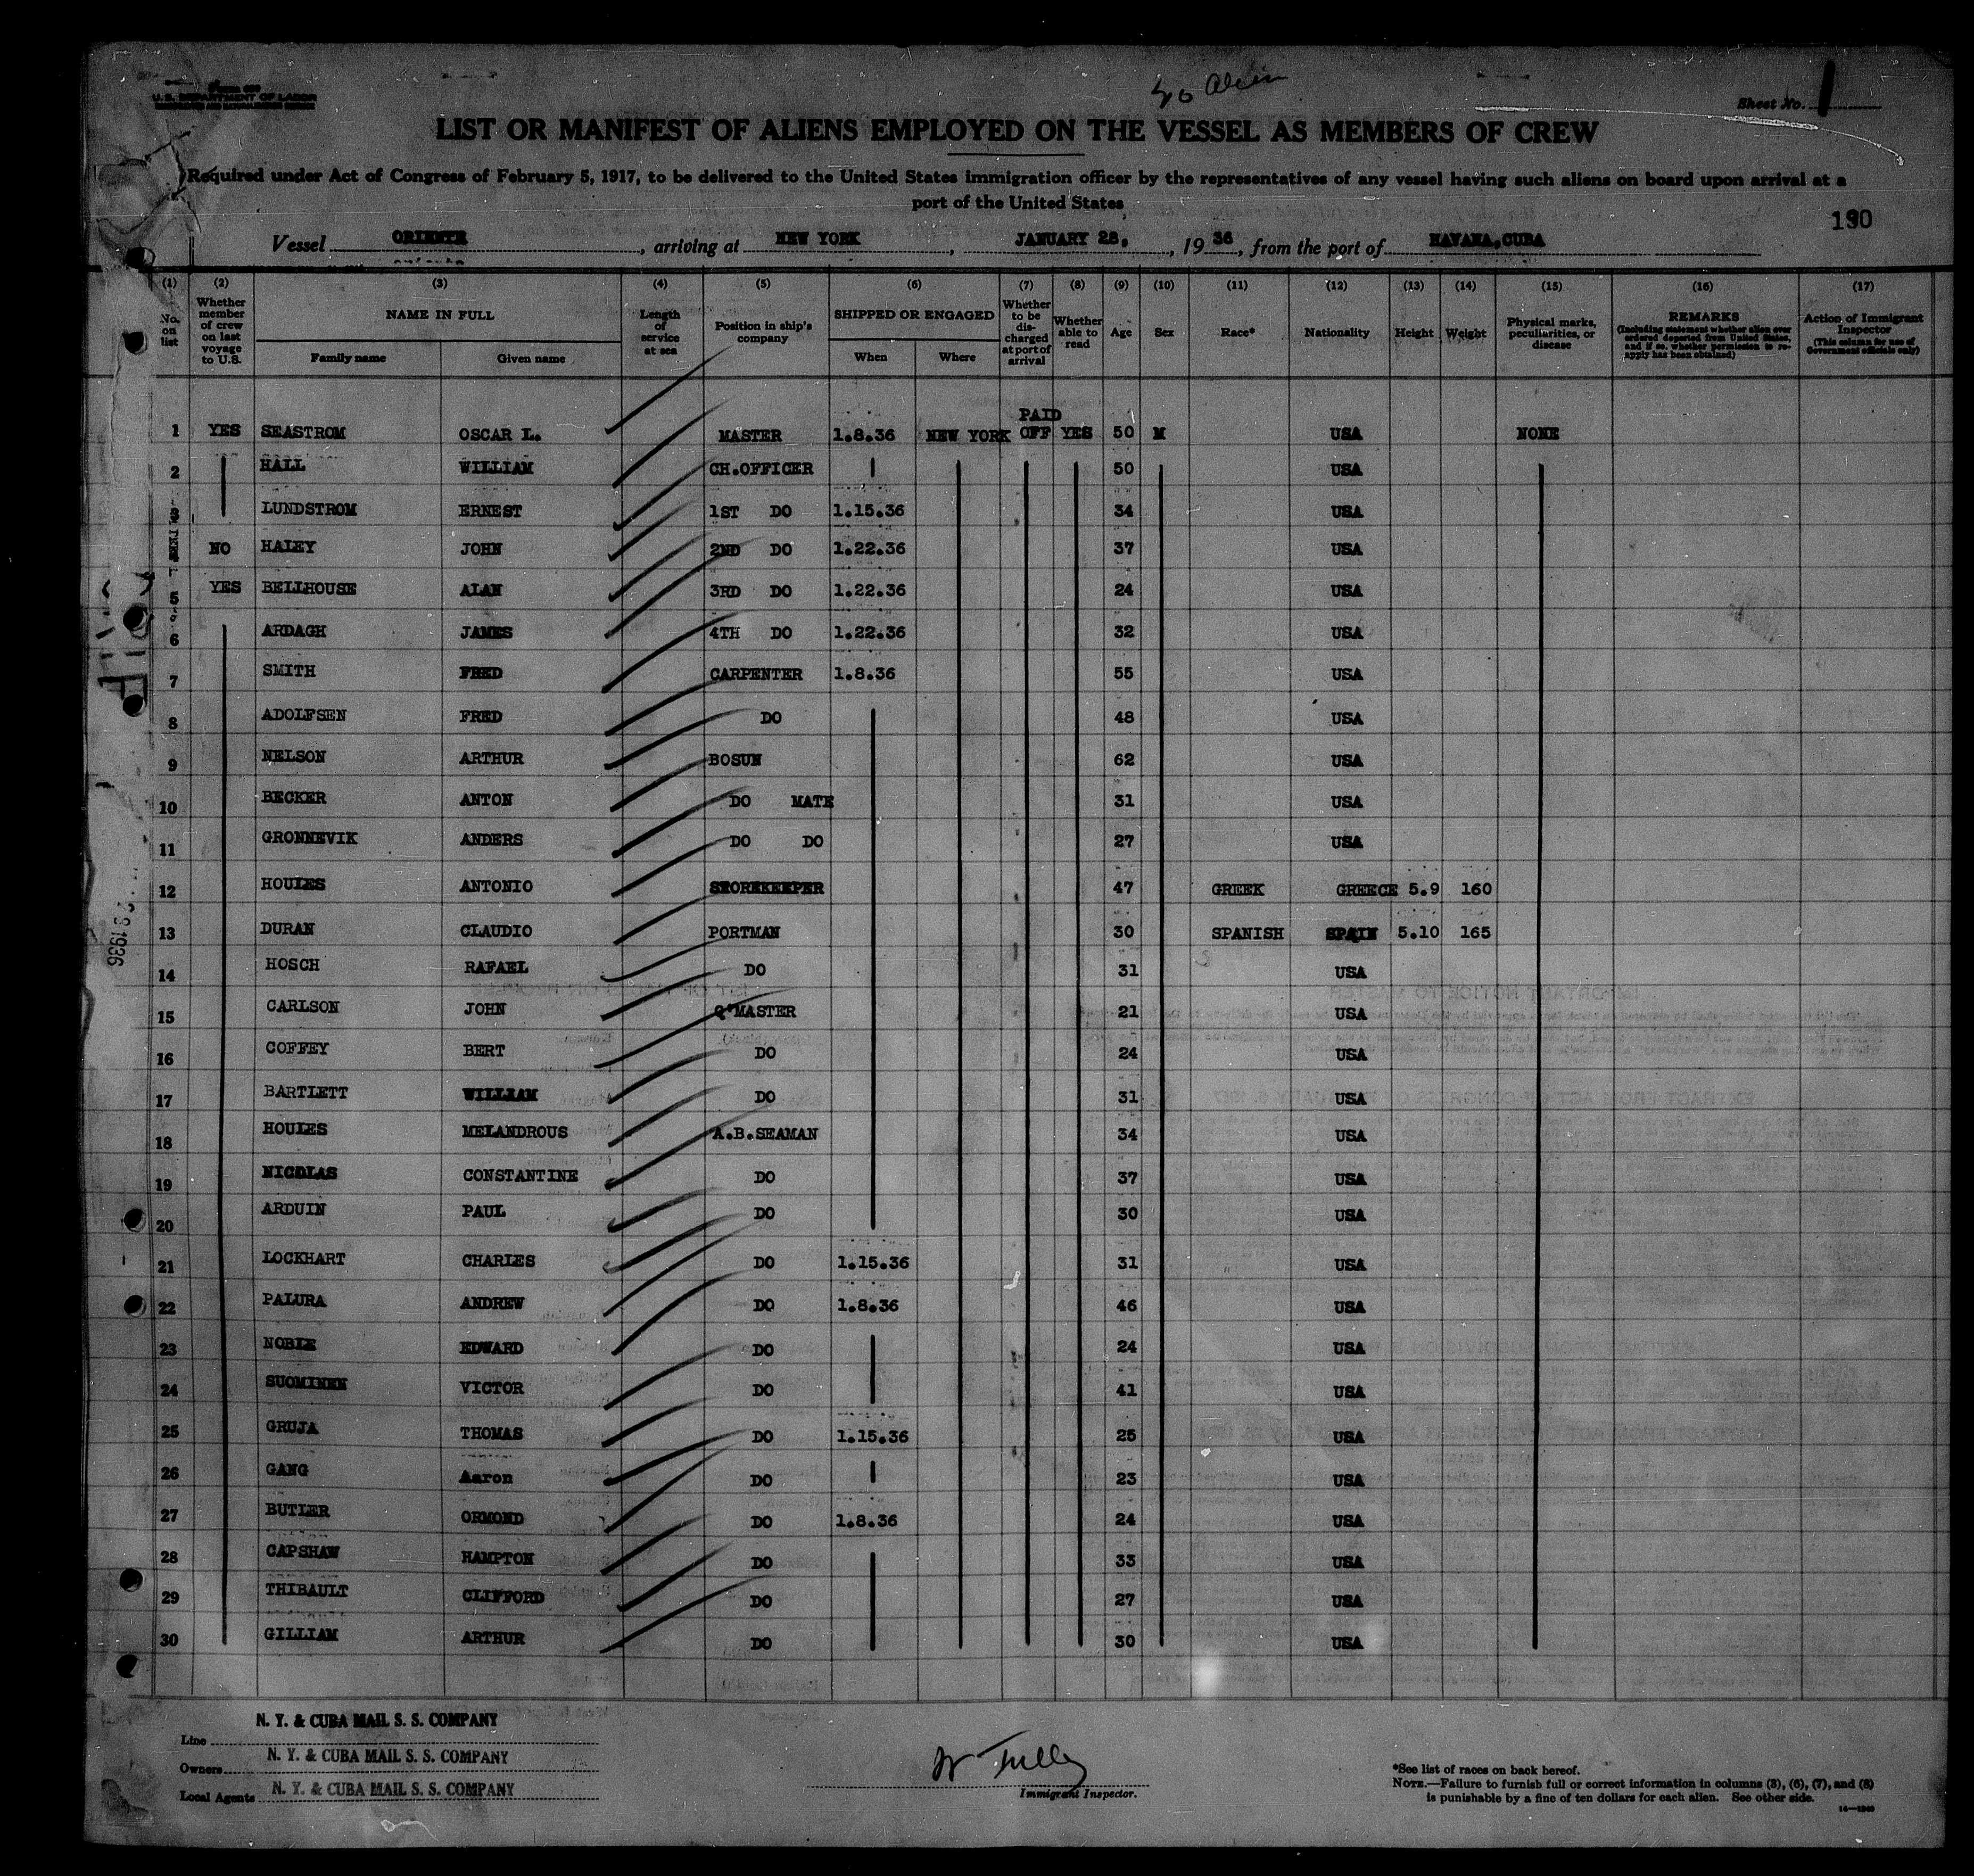 U.S. DEPARTMENT OF LABOR
Sheet No. 1
LIST OR MANIFEST OF ALIENS EMPLOYED ON THE VESSEL AS MEMBERS OF CREW
Required under Act of Congress of February 5, 1917, to be delivered to the United States immigration officer by the representatives of any vessel having such aliens on board upon arrival at a
port of the United States
190
Vessel ORIENTE, arriving at NEW YORK, JANUARY 28, 1936, from the port of HAVANA, CUBA
(1) (2) (3) (4) (5) (6) (7) (8) (9) (10) (11) (12) (13) (14) (15) (16) (17)
No. on list Whether member of crew on last voyage to U.S. NAME IN FULL Family name Given name Length of service at sea Position in ship's company SHIPPED OR ENGAGED When Where Whether to be discharged at port of arrival Whether able to read Age Sex Race* Nationality Height Weight Physical marks, peculiarities, or disease REMARKS (Including statement whether alien ever ordered deported from United States, and if so, whether permission to re-apply has been obtained) Action of Immigrant Inspector (This column for use of Government officials only)
1 YES SEASTROM OSCAR L. MASTER 1.8.36 NEW YORK PAID OFF YES 50 M USA NONE
2 HALL WILLIAM CH.OFFICER 50 USA
3 LUNDSTROM ERNEST 1ST DO 1.15.36 34 USA
NO HALEY JOHN 2ND DO 1.22.36 37 USA
5 YES BELLHOUSE ALAN 3RD DO 1.22.36 24 USA
6 ARDAGH JAMES 4TH DO 1.22.36 32 USA
7 SMITH FRED CARPENTER 1.8.36 55 USA
8 ADOLFSEN FRED DO 48 USA
9 NELSON ARTHUR BOSUN 62 USA
10 BECKER ANTON DO MATE 31 USA
11 GRONNEVIK ANDERS DO DO 27 USA
12 HOULES ANTONIO STOREKEEPER 47 GREEK GREECE 5.9 160
13 DURAN CLAUDIO PORTMAN 30 SPANISH SPAIN 5.10 165
14 HOSCH RAFAEL DO 31 USA
15 CARLSON JOHN Q'MASTER 21 USA
16 COFFEY BERT DO 24 USA
17 BARTLETT WILLIAM DO 31 USA
18 HOULES MELANDROUS A.B.SEAMAN 34 USA
19 NICOLAS CONSTANTINE DO 37 USA
20 ARDUIN PAUL DO 30 USA
21 LOCKHART CHARLES DO 1.15.36 31 USA
22 PALURA ANDREW DO 1.8.36 46 USA
23 NOBLE EDWARD DO 24 USA
24 SUOMINEN VICTOR DO 41 USA
25 GRUJA THOMAS DO 1.15.36 25 USA
26 GANG Aaron DO 23 USA
27 BUTLER ORMOND DO 1.8.36 24 USA
28 CAPSHAW HAMPTON DO 33 USA
29 THIBAULT CLIFFORD DO 27 USA
30 GILLIAM ARTHUR DO 30 USA
Line N. Y. & CUBA MAIL S. S. COMPANY
Owners N. Y. & CUBA MAIL S. S. COMPANY
Local Agents N. Y. & CUBA MAIL S. S. COMPANY
Immigrant Inspector.
*See list of races on back hereof.
NOTE.—Failure to furnish full or correct information in columns (3), (6), (7), and (8)
is punishable by a fine of ten dollars for each alien. See other side.